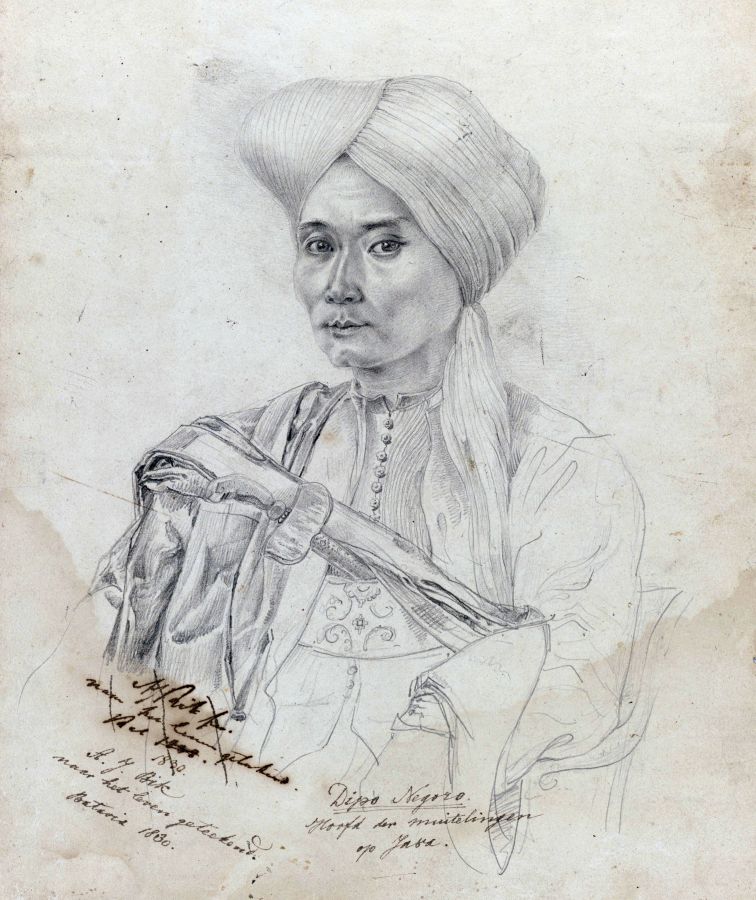 naar het leven
1830.
A. J. Bik
naar het leven geteekend.
Batavia 1830.
Dipo Negoro.
Hoofd der muitelingen
op Java.